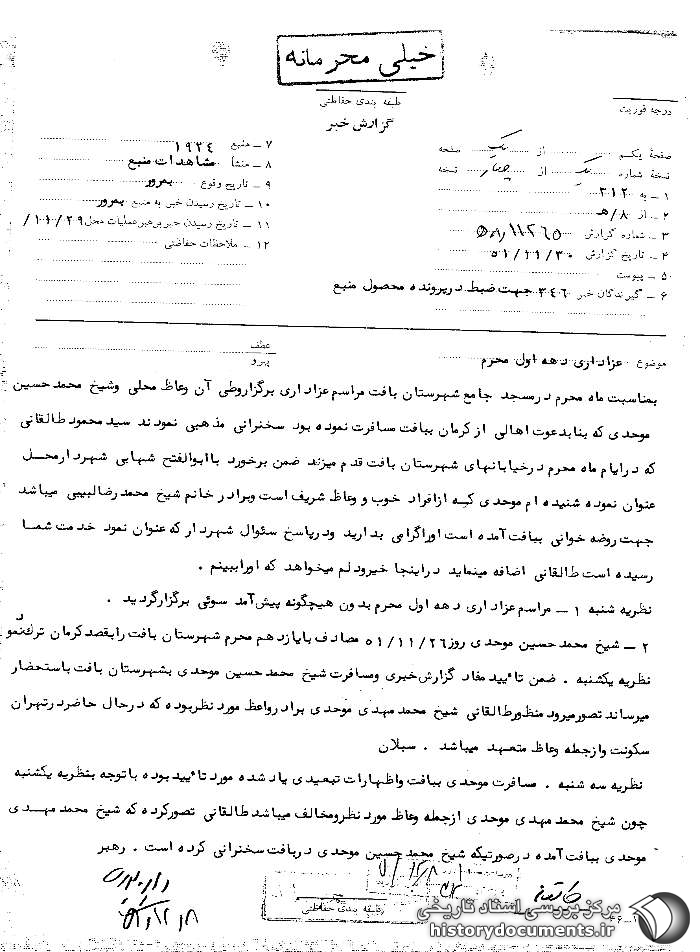 خیلی محرمانه
طبقه بندی حفاظتی
گزارش خبر
درجه فوریت
صفحه یکم از یک صفحه
نسخه شماره یک از چهار نسخه
۱ - به ۳۱۲
۲ - از ۸/هـ
۳ - شماره گزارش ۱۱۲۶۵/۸هـ
۴ - تاریخ گزارش ۵۱/۱۱/۳۰
۵ - پیوست
۶ - گیرندگان خبر ۳۴۶ جهت ضبط در پرونده محصول منبع
۷ - منبع ۱۹۲۴
۸ - منشأ مشاهدات منبع
۹ - تاریخ وقوع بمرور
۱۰ - تاریخ رسیدن خبر به منبع بمرور
۱۱ - تاریخ رسیدن خبر برهبر عملیات محل ۱۱/۲۹/
۱۲ - ملاحظات حفاظتی
موضوع عزاداری دهه اول محرم
عطف
پیرو
بمناسبت ماه محرم در مسجد جامع شهرستان بافت مراسم عزاداری برگزار وطی آن وعاظ محلی وشیخ محمد حسین
موحدی که بنابدعوت اهالی از کرمان ببافت مسافرت نموده بود سخنرانی مذهبی نمودند سید محمود طالقانی
که درایام ماه محرم درخیابانهای شهرستان بافت قدم میزند ضمن برخورد باابوالفتح شهابی شهردار محل
عنوان نموده شنیده ام موحدی که از افراد خوب و وعاظ شریف است وبرادر خانم شیخ محمد رضا لبیبی میباشد
جهت روضه خوانی ببافت آمده است اوراگرامی بدارید ودرپاسخ سئوال شهردار که عنوان نمود خدمت شما
رسیده است طالقانی اضافه مینماید دراینجا خیر ودلم میخواهد که اوراببینم .
نظریه شنبه ۱ - مراسم عزاداری دهه اول محرم بدون هیچگونه پیش آمد سوئی برگزار گردید .
۲ - شیخ محمد حسین موحدی روز ۵۱/۱۱/۲۶ مصادف بایازدهم محرم شهرستان بافت رابقصد کرمان ترک نمود
نظریه یکشنبه . ضمن تائید مفاد گزارش خبری ومسافرت شیخ محمد حسین موحدی بشهرستان بافت باستحضار
میرساند تصور میرود منظور طالقانی شیخ محمد مهدی موحدی برادر واعظ مورد نظر بوده که در حال حاضر در تهران
سکونت وازجمله وعاظ متعهد میباشد . سبلان
نظریه سه شنبه . مسافرت موحدی ببافت واظهارات تبعیدی یاد شده مورد تائید بوده باتوجه بنظریه یکشنبه
چون شیخ محمد مهدی موحدی ازجمله وعاظ مورد نظر ومخالف میباشد طالقانی تصور کرده که شیخ محمد مهدی
موحدی ببافت آمده در صورتیکه شیخ محمد حسین موحدی در بافت سخنرانی کرده است . رهبر
طبقه بندی حفاظتی
مرکز بررسی اسناد تاریخی
historydocuments.ir